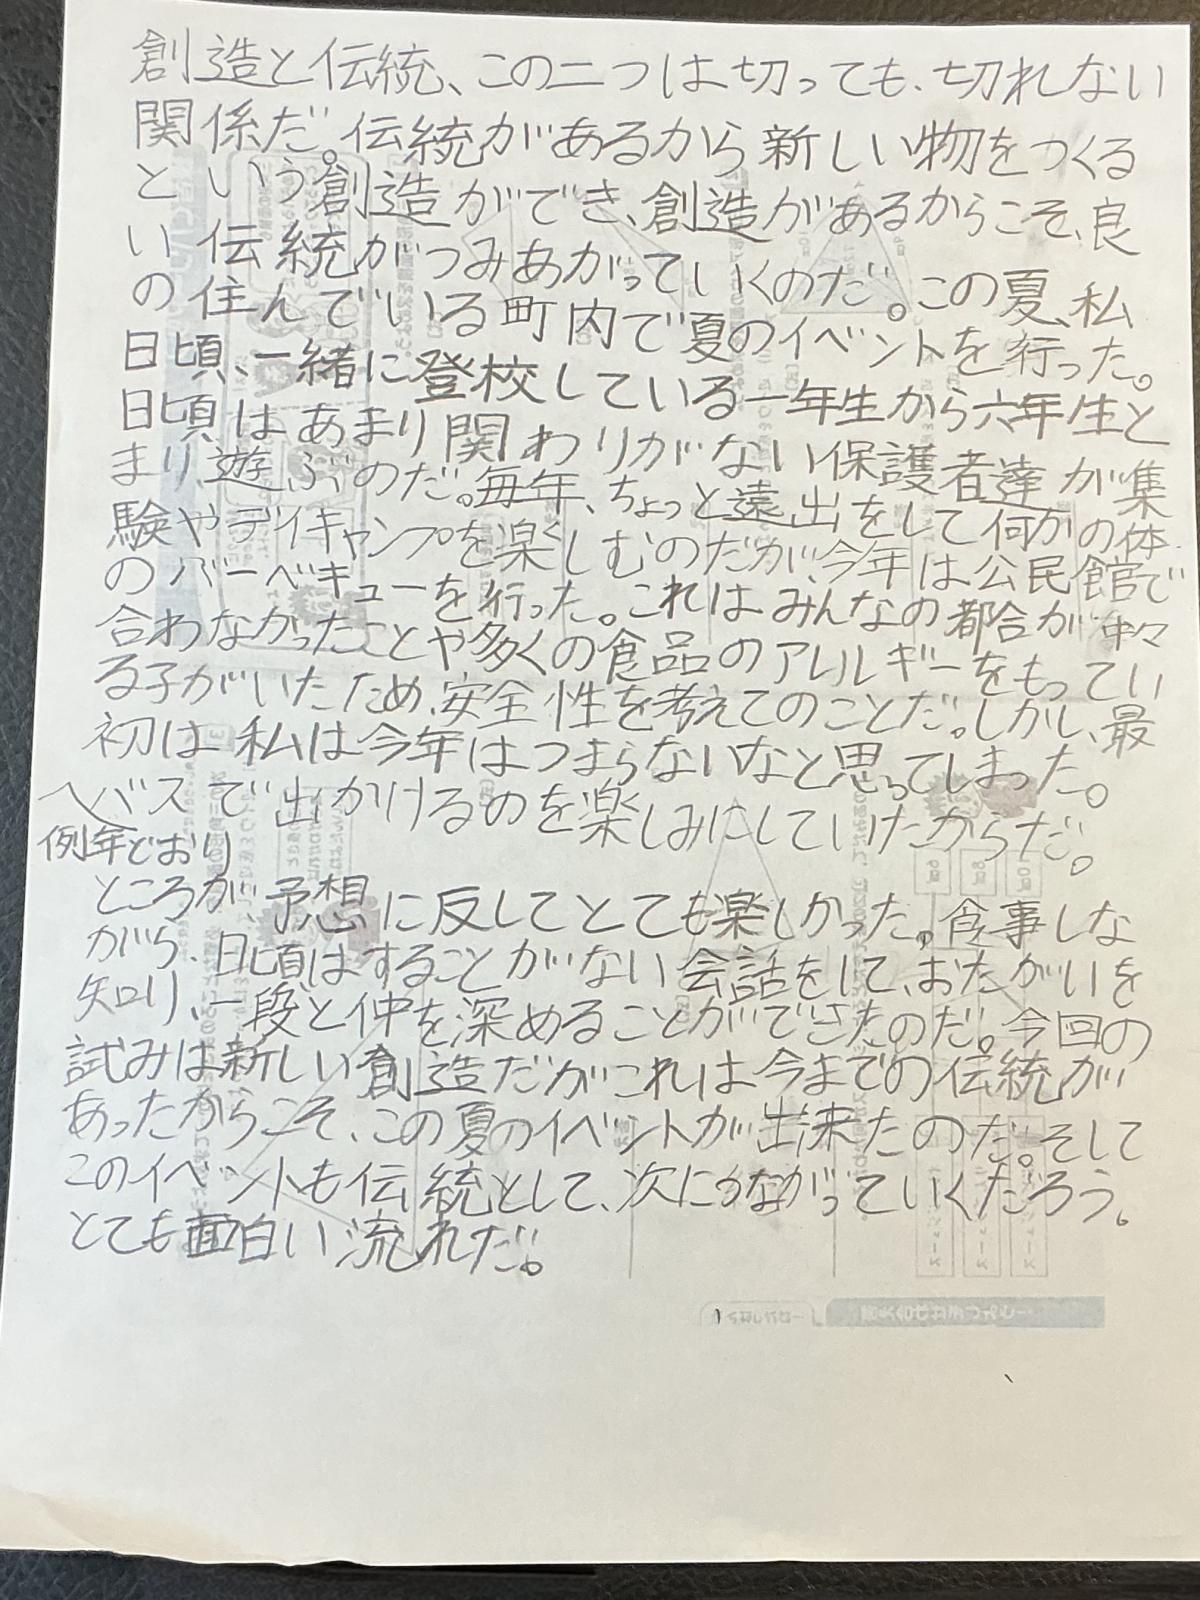 創造と伝統、この二つは切っても、切れない
関係だ。伝統があるから新しい物をつくる
という創造ができ、創造があるからこそ、良
い伝統がつみあがっていくのだ。この夏、私
の住んでいる町内で夏のイベントを行った。
日頃、一緒に登校している一年生から六年生と
日頃はあまり関わりがない保護者達が集
まり遊ぶのだ。毎年、ちょっと遠出をして何かの体
験やデイキャンプを楽しむのだが、今年は公民館で
のバーベキューを行った。これはみんなの都合が中々
合わなかったことや多くの食品のアレルギーをもってい
る子がいたため、安全性を考えてのことだ。しかし、最
初は私は今年はつまらないなと思ってしまった。
バスで出かけるのを楽しみにしていたからだ。
例年どおり
ところが予想に反してとても楽しかった。食事しな
がら、日頃はすることがない会話をして、おたがいを
知り、一段と仲を深めることができたのだ。今回の
試みは新しい創造だがこれは今までの伝統が
あったからこそ、この夏のイベントが出来たのだ。そして
このイベントも伝統として、次につながっていくだろう。
とても面白い流れだ。